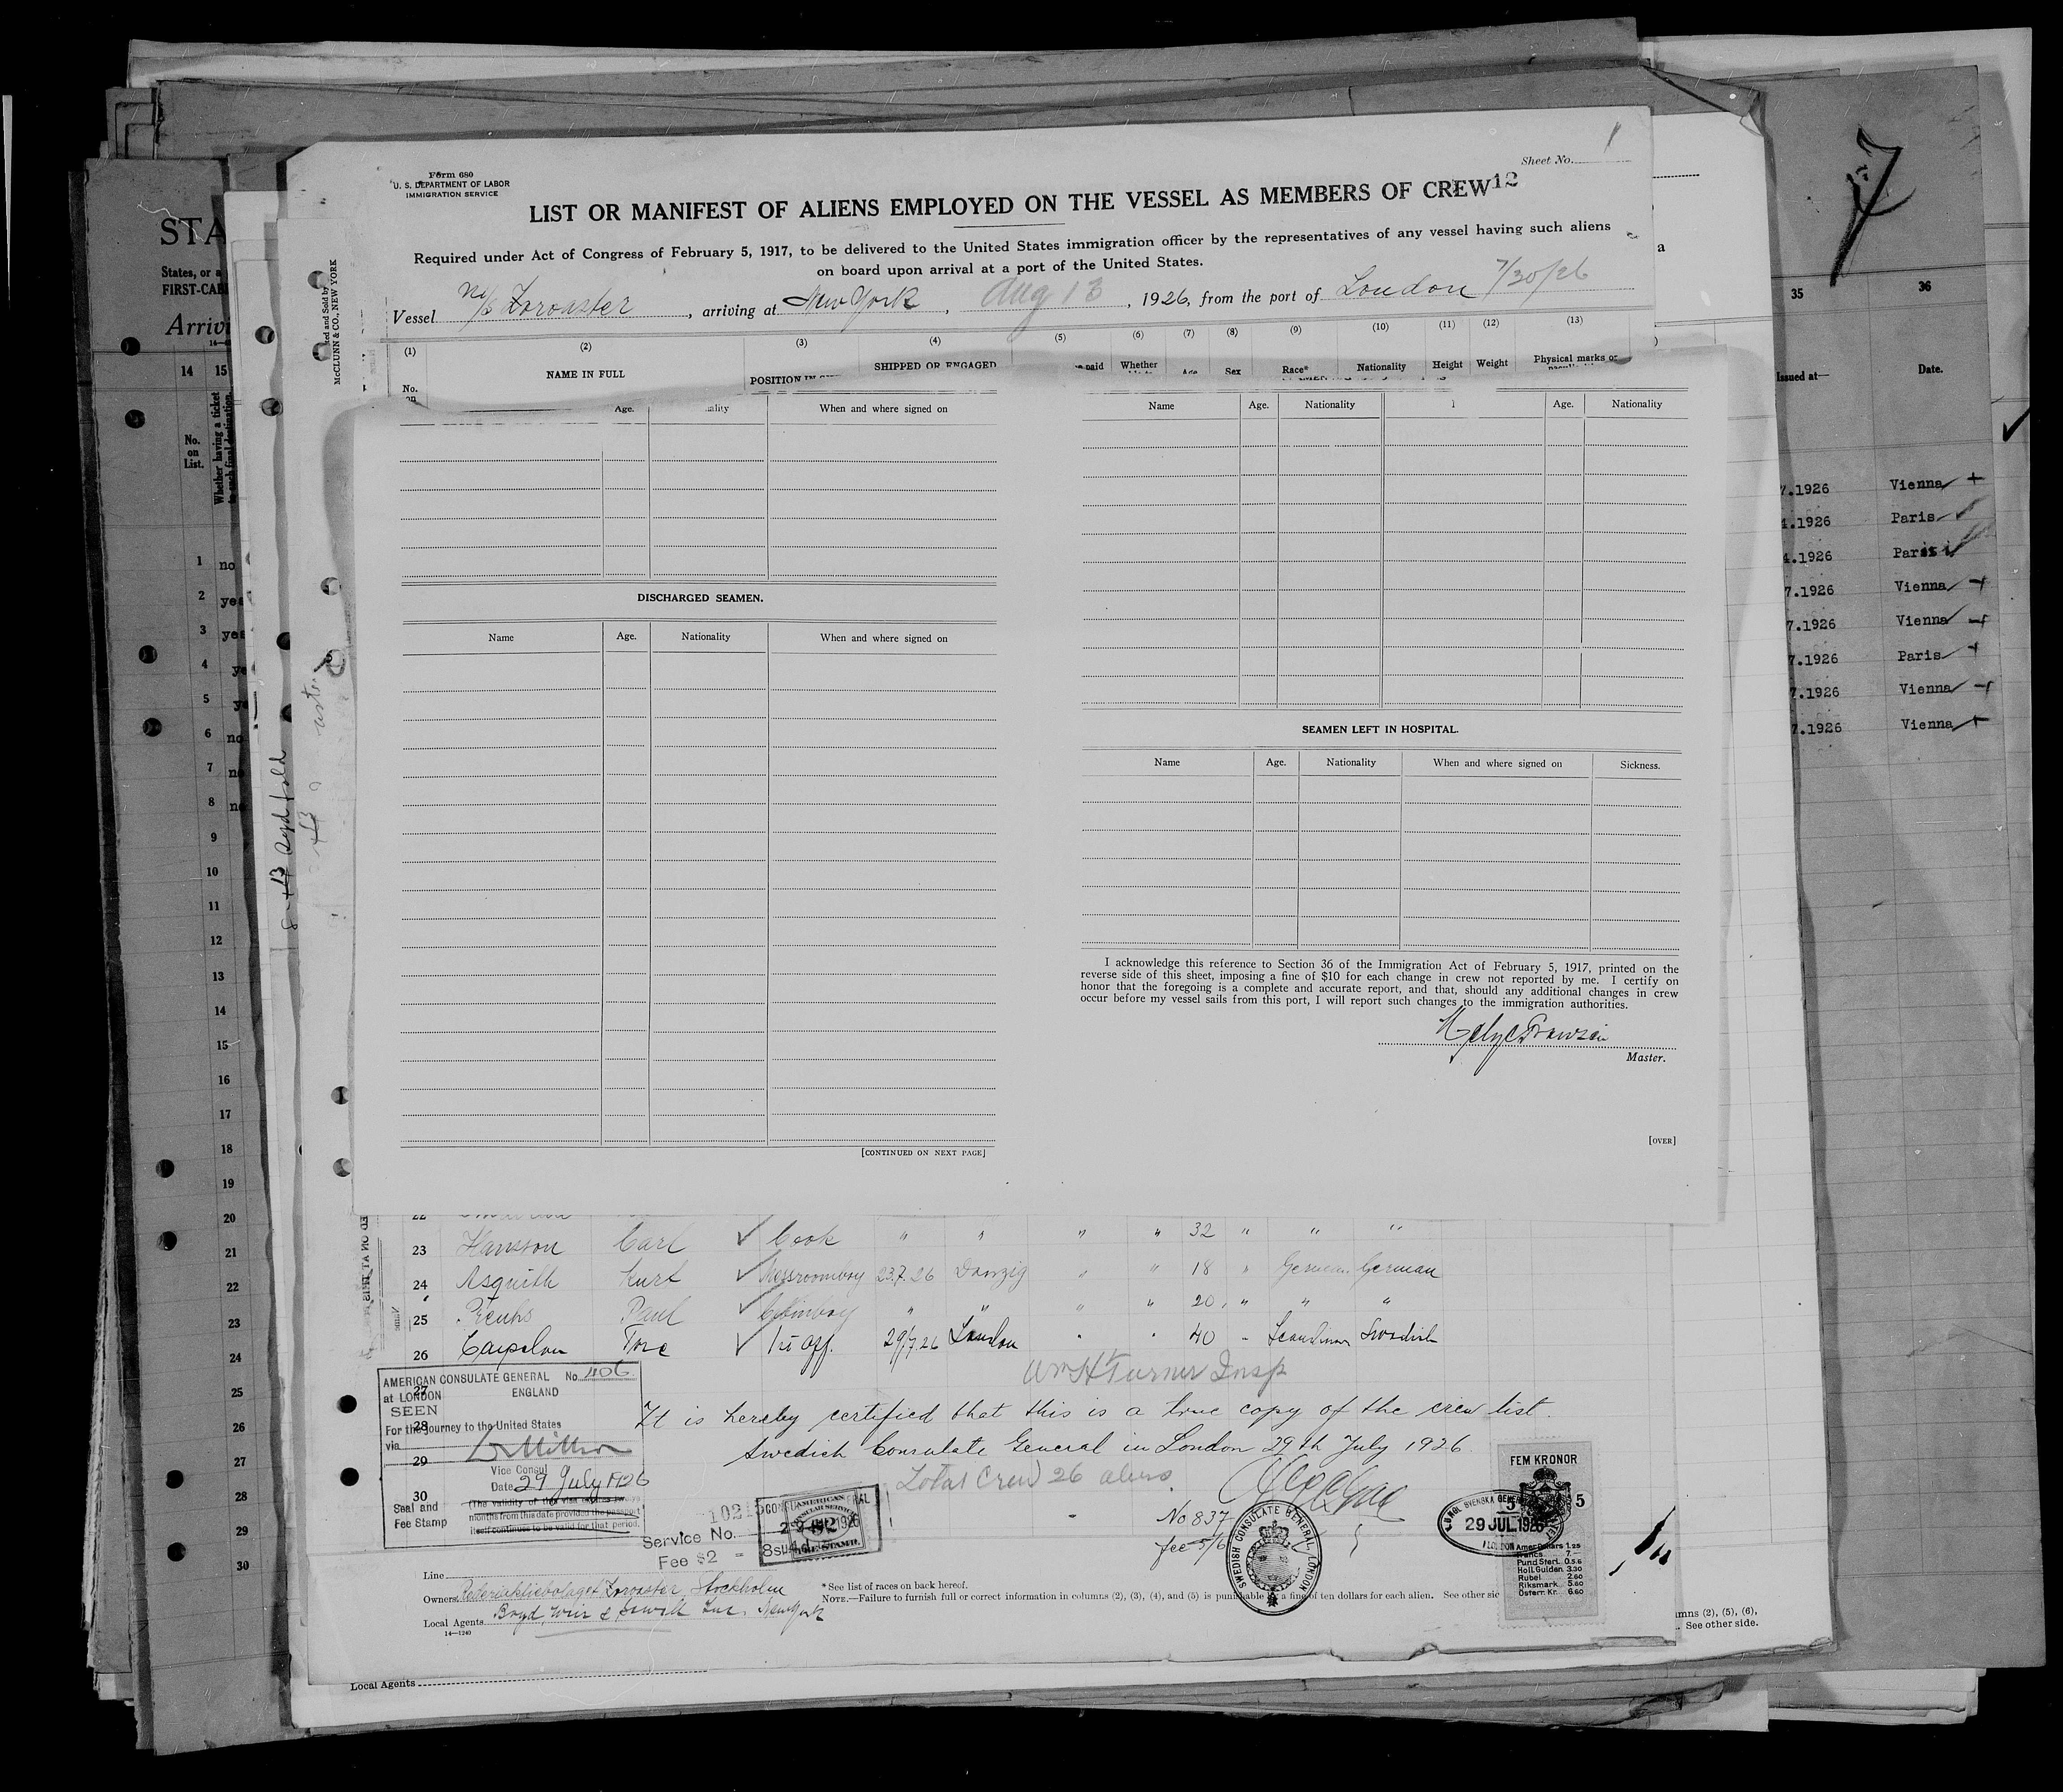 Sheet No. 1
Form 680
U. S. DEPARTMENT OF LABOR
IMMIGRATION SERVICE
LIST OR MANIFEST OF ALIENS EMPLOYED ON THE VESSEL AS MEMBERS OF CREW 12
Required under Act of Congress of February 5, 1917, to be delivered to the United States immigration officer by the representatives of any vessel having such aliens
on board upon arrival at a port of the United States.
Vessel M/S Zoroaster, arriving at New York, Aug 13, 1926, from the port of London 7/30/26
(1) (2) (3) (4) (5) (6) (7) (8) (9) (10) (11) (12) (13)
No. NAME IN FULL POSITION IN SHIPPED OR ENGAGED paid Whether Age Sex Race* Nationality Height Weight Physical marks or
Age. When and where signed on
Name Age. Nationality Age. Nationality
DISCHARGED SEAMEN.
Name Age. Nationality When and where signed on
[CONTINUED ON NEXT PAGE]
SEAMEN LEFT IN HOSPITAL.
Name Age. Nationality When and where signed on Sickness.
I acknowledge this reference to Section 36 of the Immigration Act of February 5, 1917, printed on the
reverse side of this sheet, imposing a fine of $10 for each change in crew not reported by me. I certify on
honor that the foregoing is a complete and accurate report, and that, should any additional changes in crew
occur before my vessel sails from this port, I will report such changes to the immigration authorities.
Master.
[OVER]
22
23 Hansson Carl ✓ Cook " " " " 32 " " "
24 Asquith Kurt ✓ Messroomboy 23.7.26 Danzig " " 18 " German German
25 Paul ✓ " " " " 20 " " "
26 Tore ✓ 1st Off. 29/7.26 London " " 40 " Swedish
Wm H Turner Insp
It is hereby certified that this is a true copy of the crew list.
Swedish Consulate General in London 29th July 1926.
Total Crew 26 aliens
No 837
fee 5/6
AMERICAN CONSULATE GENERAL No. 1106
at LONDON ENGLAND
SEEN
For the journey to the United States
via
Vice Consul
Date 29 July 1926
(The validity of this visa expires twelve
months from this date provided the passport
itself continues to be valid for that period.
Seal and
Fee Stamp
27
28
29
30
Service No.
Fee $2
SWEDISH CONSULATE GENERAL LONDON
29 JUL 1926
FEM KRONOR
5
Pund Sterl. 0.5.6
Holl. Gulden 3.30
Rubel 2.60
Riksmark 5.80
Österr. Kr. 6.60
Line
Owners Rederiaktiebolaget Zoroaster, Stockholm
Local Agents Boyd, Weir & Sewell Inc. New York
14—1240
*See list of races on back hereof.
NOTE.—Failure to furnish full or correct information in columns (2), (3), (4), and (5) is punishable by a fine of ten dollars for each alien. See other
Local Agents
mns (2), (5), (6),
See other side.
McCLUNN & CO., NEW YORK
STA
States, or a
FIRST-CAB
Arrivi
14 15
No.
on
List.
Whether having a ticket
to such final destination.
1 no
2 yes
3 yes
4 ye
5 ye
6 no
7 no
8 no
9
10
11
12
13
14
15
16
17
18
19
20
21
22
23
24
25
26
27
28
29
30
7
35 36
Issued at— Date.
7.1926 Vienna
1926 Paris
4.1926 Paris
7.1926 Vienna
7.1926 Vienna
7.1926 Paris
7.1926 Vienna
7.1926 Vienna